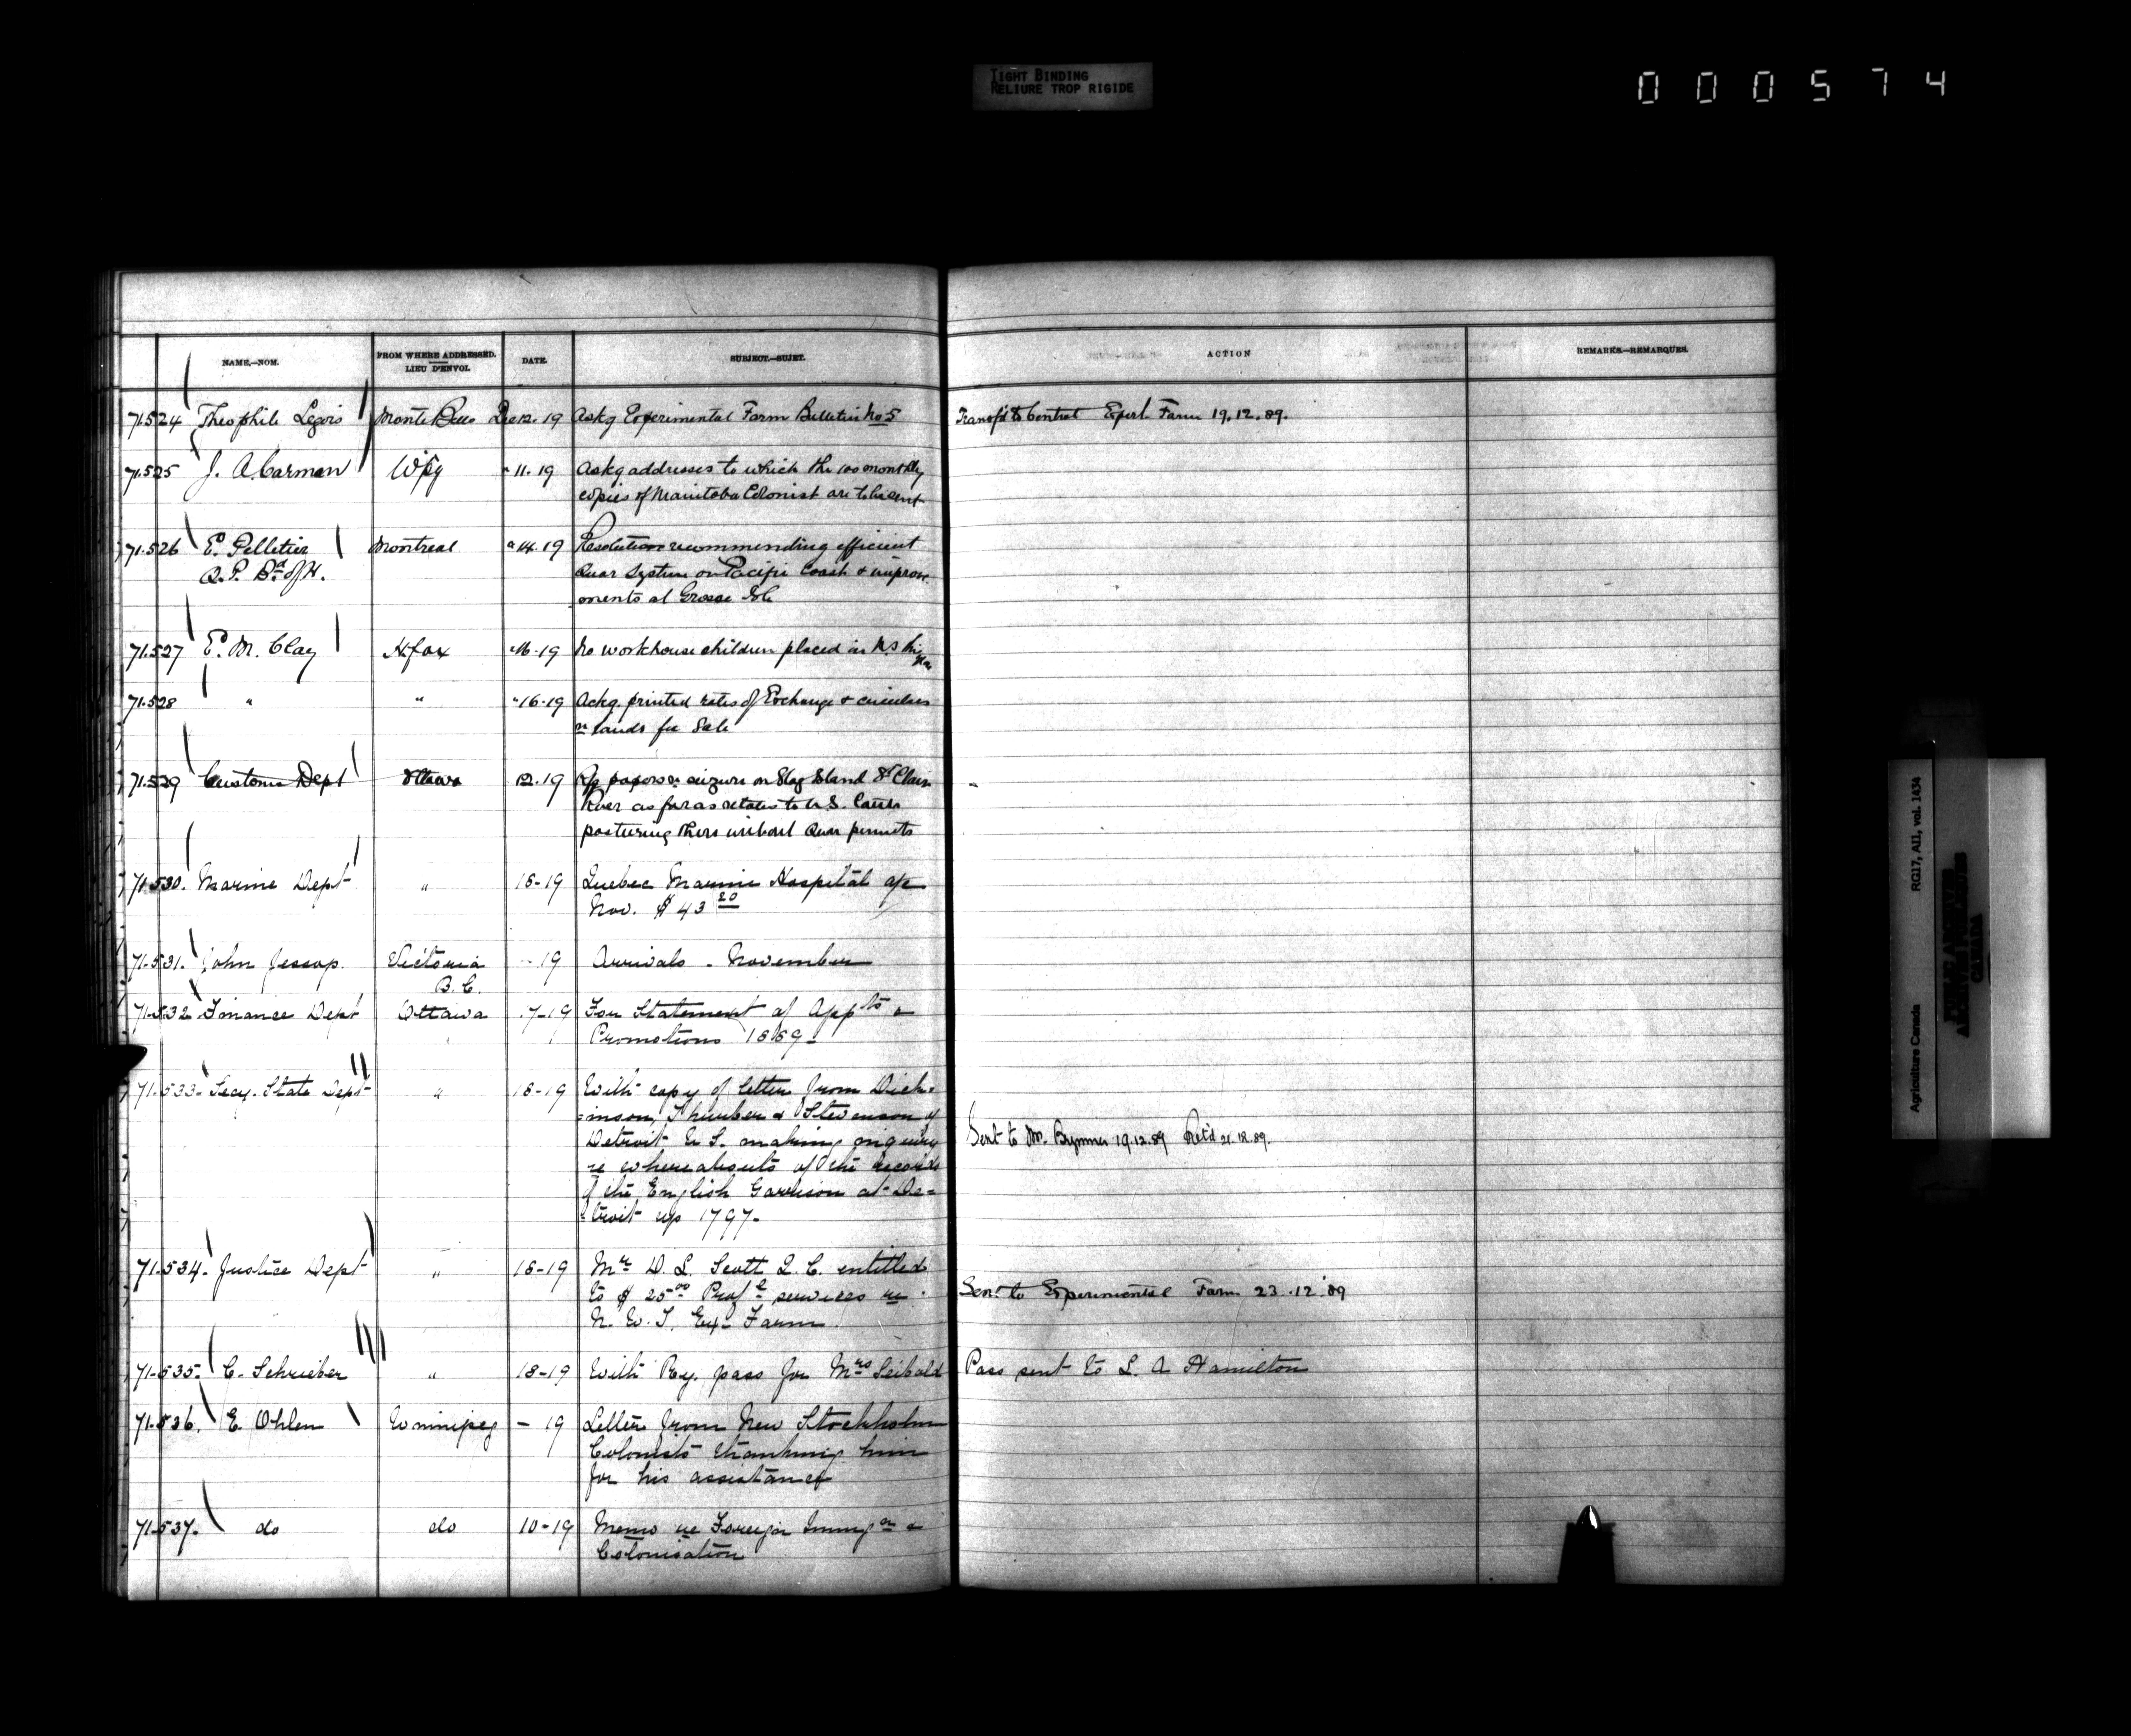 TIGHT BINDING
RELIURE TROP RIGIDE
000574
NAME.—NOM.
FROM WHERE ADDRESSED.
LIEU D'ENVOI.
DATE.
SUBJECT.—SUJET.
ACTION
REMARKS.—REMARQUES.
71.524 Theophile Legris Monte Bello Dec 12. 19 Askg Experimental Farm Bulletin No 5 Transf'd to Central Exper. Farm 19.12.89.
71.525 J. A. Carman Wpg " 11. 19 Askg addresses to which the 100 monthly
copies of Manitoba Colonist are to be sent
71.526 E. Pelletier Montreal " 14. 19 Resolution recommending efficient
Q. P. Bd of H. Quar System on Pacific Coast & improve
ments at Grosse Isle
71.527 E. M. Clay Hfax " 16. 19 No workhouse children placed in N.S. this
71.528 " " " 16. 19 Ackg. printed rates of Exchange & circulars
re lands for Sale
71.529 Customs Dept Ottawa 12. 19 papers re seizure on Stag Island St Clair
River as far as relates to U.S. Cattle
pasturing there without Quar permits
71.530. Marine Dept " 18-19 Quebec Marine Hospital a/c
Nov. $43 20
71.531. John Jessop. Victoria - 19 Arrivals - November
B. C.
71.532 Finance Dept Ottawa 17-19 For Statement of Appts &
Promotions 1889-
71.533- Secy. State Dept " 18-19 With copy of letter from Dick-
inson, Thurber & Stevenson of
Detroit U.S. making inquiry Sent to Mr. Brymner 19.12.89 Ret'd 21.12.89.
re whereabouts of the records
of the English Garrison at De-
troit up 1797-
71.534- Justice Dept " 18-19 Mr D. L. Scott Q. C. entitled
to $25 00 Profl services re Sent to Experimental Farm 23.12.89
N. W. T. Ex- Farm
71.535- C. Schrieber " 18-19 With Ry. pass for Mrs Seibold Pass sent to L. A Hamilton
71.536. E. Ohlen Winnipeg - 19 Letter from New Stockholm
Colonists thanking him
for his assistance
71.537. do do 10-19 Memo re Foreign Immign &
Colonisation
Agriculture Canada RG17, AII, vol. 1434
PUBLIC ARCHIVES
ARCHIVES PUBLIQUES
CANADA